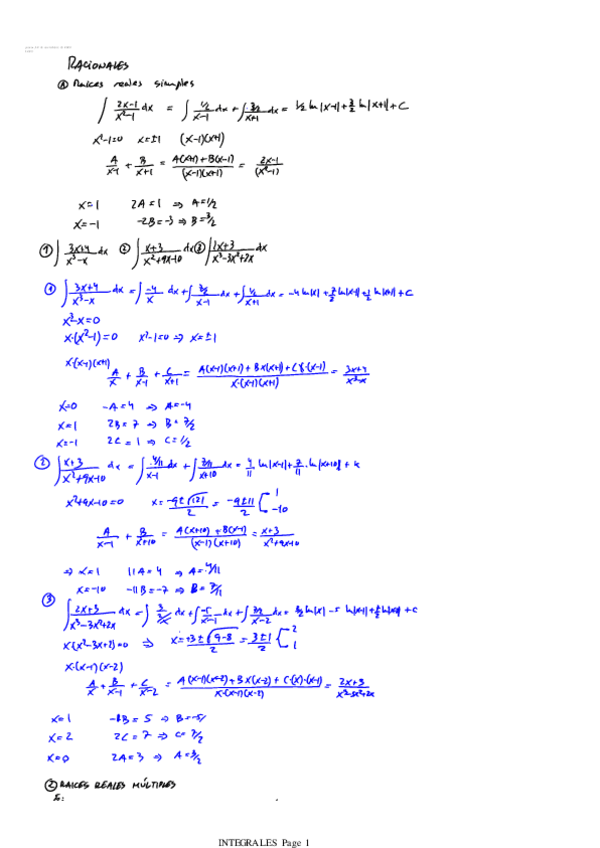 RACIONALES
① Raices reales simples
∫ 2x-1/x²-1 dx = ∫ 1/2/x-1 dx + ∫ 3/2/x+1 dx = 1/2 ln|x-1| + 3/2 ln|x+1| + C
x²-1=0 x=±1 (x-1)(x+1)
A/x-1 + B/x+1 = A(x+1)+B(x-1)/(x-1)(x+1) = 2x-1/(x²-1)
x=1 2A=1 ⇒ A=1/2
x=-1 -2B=-3 ⇒ B=3/2
① ∫ 3x+4/x³-x dx ② ∫ x+3/x²+9x-10 dx ③ ∫ 2x+3/x³-3x²+2x dx
① ∫ 3x+4/x³-x dx = ∫ -4/x dx + ∫ 7/2/x-1 dx + ∫ 1/2/x+1 dx = -4 ln|x| + 7/2 ln|x-1| + 1/2 ln|x+1| + C
x³-x=0
x·(x²-1)=0 x²-1=0 ⇒ x=±1
x·(x-1)(x+1)
A/x + B/x-1 + C/x+1 = A(x-1)(x+1)+Bx(x+1)+Cx·(x-1)/x·(x-1)(x+1) = 3x+4/x³-x
x=0 -A=4 ⇒ A=-4
x=1 2B=7 ⇒ B=7/2
x=-1 2C=1 ⇒ C=1/2
② ∫ x+3/x²+9x-10 dx = ∫ 4/11/x-1 dx + ∫ 7/11/x+10 dx = 4/11 ln|x-1| + 7/11 · ln|x+10| + k
x²+9x-10=0 x=-9±√121/2 = -9±11/2 1
-10
A/x-1 + B/x+10 = A(x+10)+B(x-1)/(x-1)(x+10) = x+3/x²+9x-10
⇒ x=1 11A=4 ⇒ A=4/11
x=-10 -11B=-7 ⇒ B=7/11
③ ∫ 2x+3/x³-3x²+2x dx = ∫ 3/2/x dx + ∫ -5/x-1 dx + ∫ 7/2/x-2 dx = 3/2 ln|x| -5 ln|x-1| + 7/2 ln|x-2| + C
x·(x²-3x+2)=0 ⇒ x=+3±√9-8/2 = 3±1/2 2
1
x·(x-1)(x-2)
A/x + B/x-1 + C/x-2 = A(x-1)(x-2)+Bx(x-2)+C·(x)·(x-1)/x·(x-1)(x-2) = 2x+3/x³-3x²+2x
x=1 -B=5 ⇒ B=-5
x=2 2C=7 ⇒ C=7/2
x=0 2A=3 ⇒ A=3/2
② RAICES REALES MÚLTIPLES
INTEGRALES Page 1